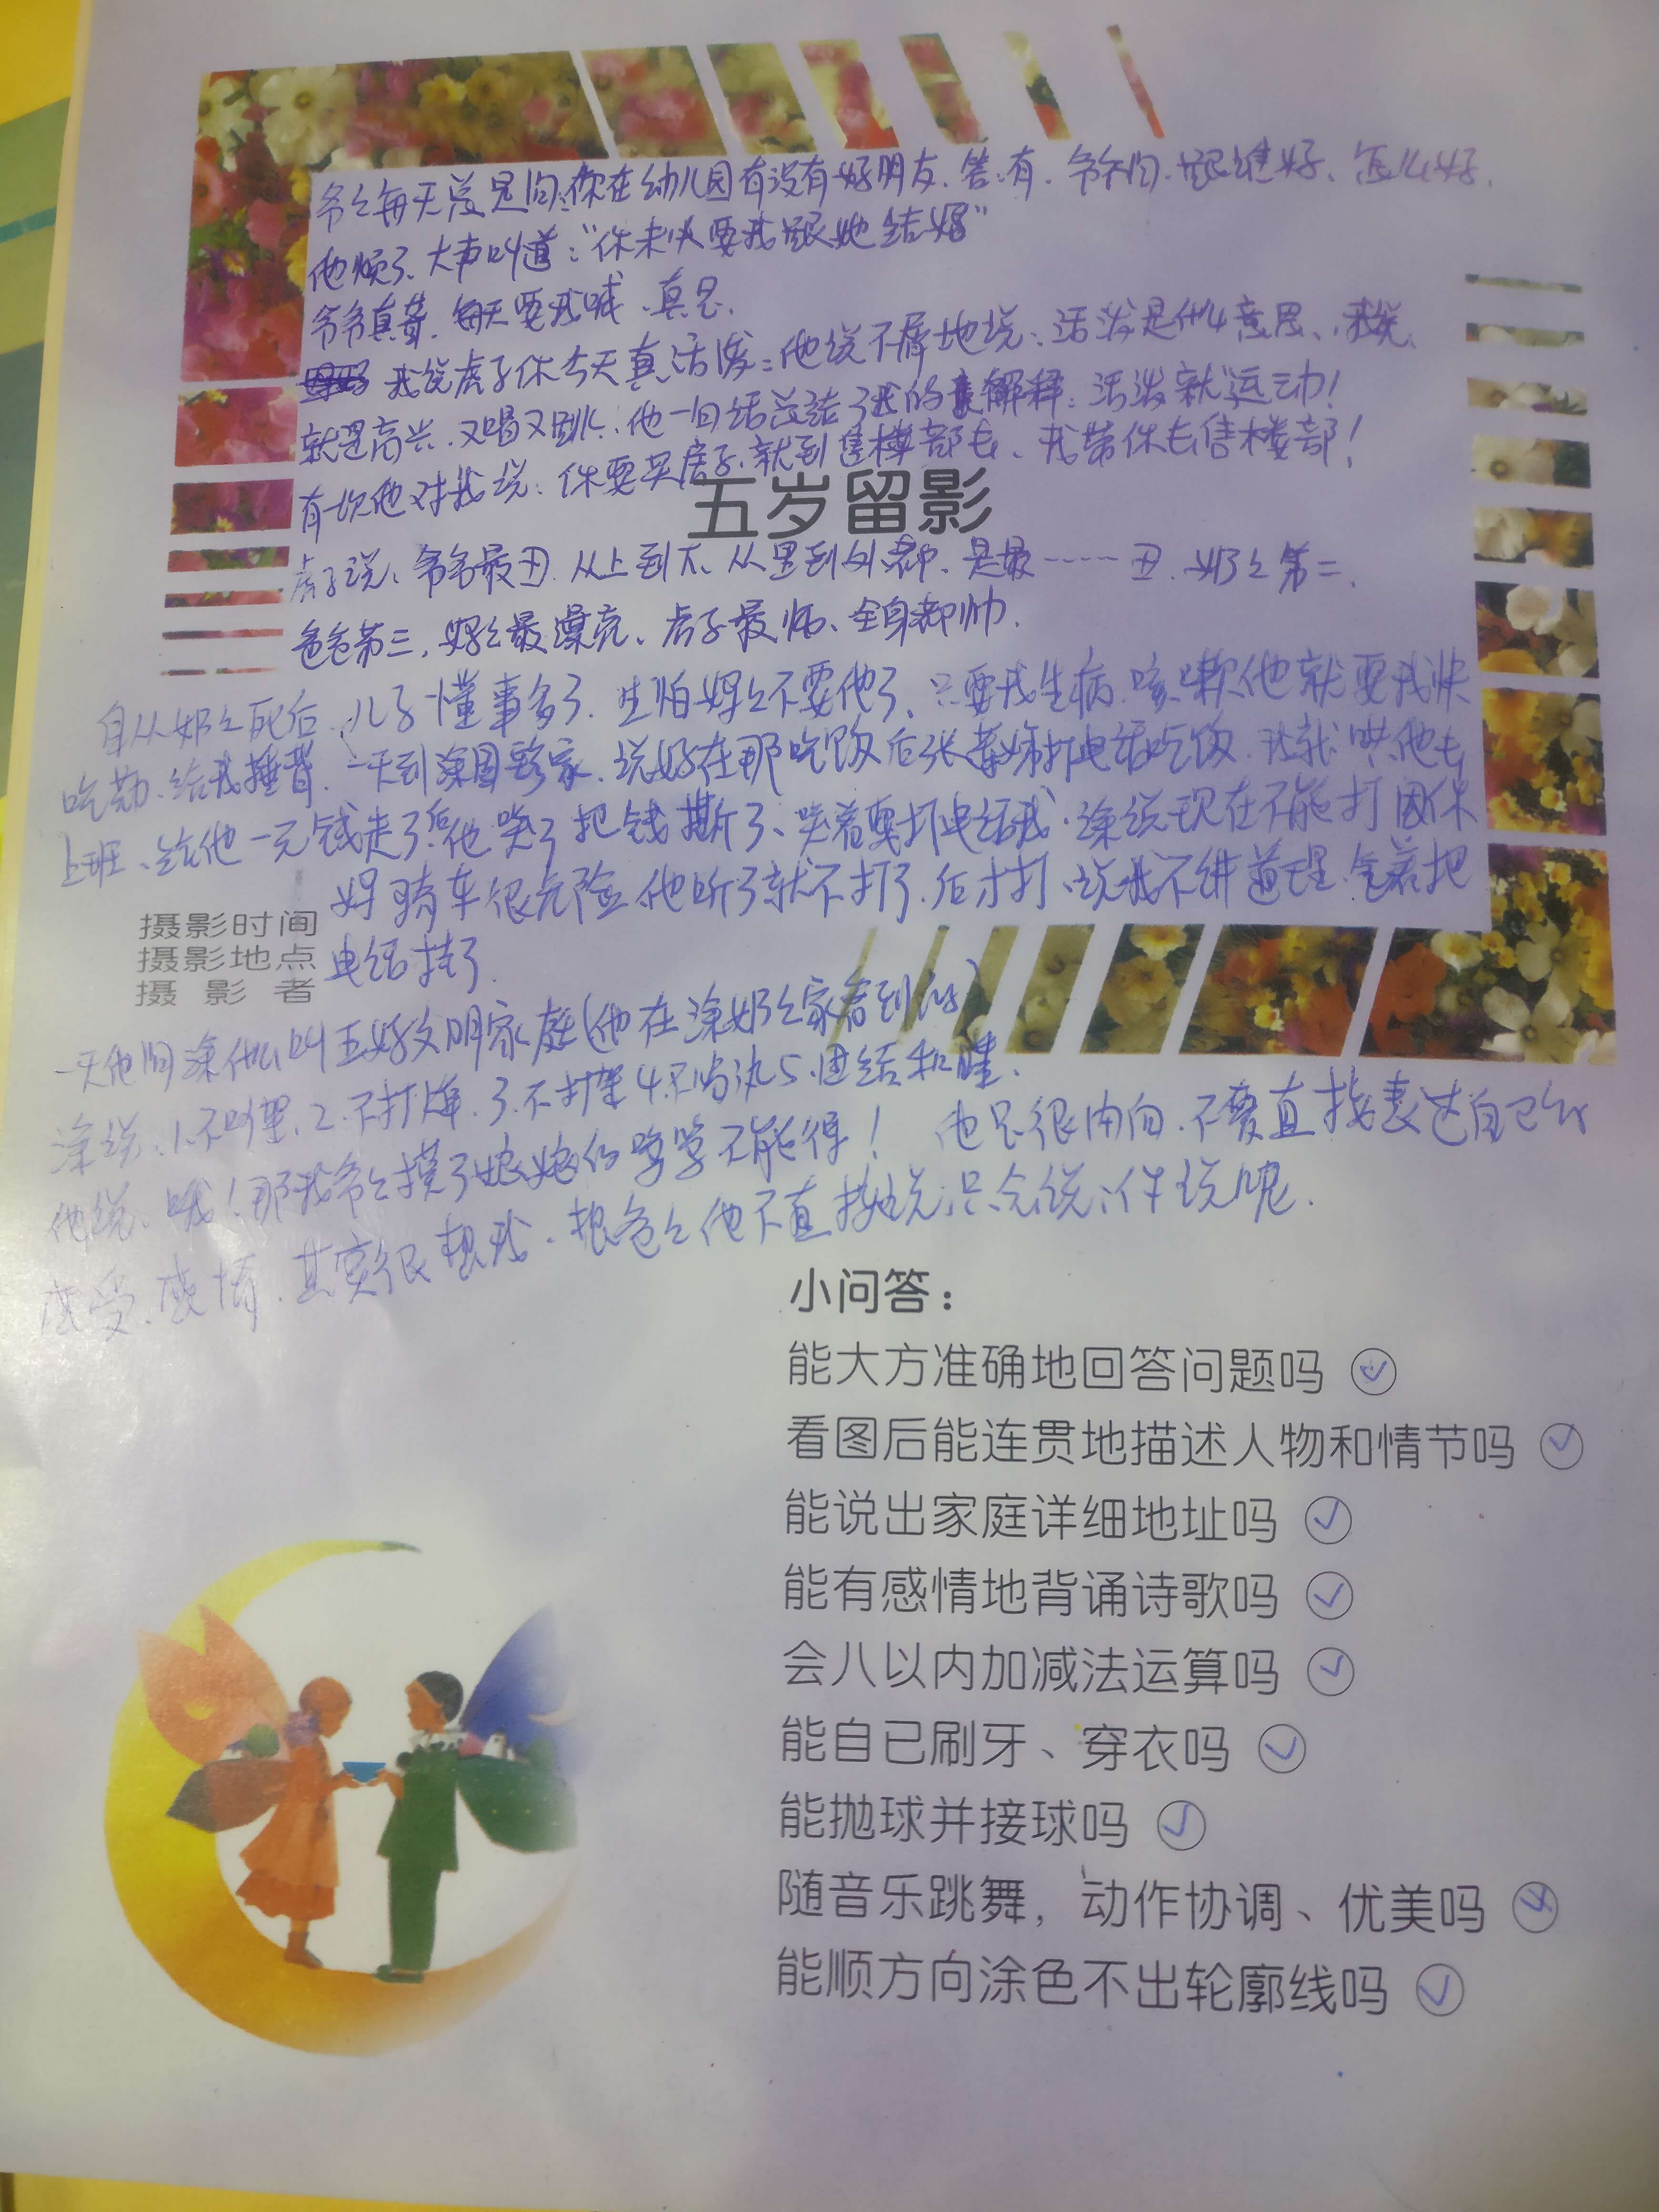 爷爷每天总是问:你在幼儿园有没有好朋友.答.有.爷爷问.跟谁好、怎么好.
他烦了.大声叫道:“你未必要我跟她结婚”
爷爷真聋.每天要我喊、真是.
我说虎子你今天真活泼:他说不屑地说:活泼是什么意思、我说、
就是高兴.又唱又跳.他一句话总结了我的解释:活泼就运动!
有一次他对我说:你要买房子.就到售楼部去、我带你去售楼部!
五岁留影
虎子说、爷爷最丑.从上到下、从里到外都、是最……丑.奶奶第二.
爸爸第三.妈妈最漂亮、虎子最帅、全身都帅.
自从奶奶死后.儿子懂事多了.生怕妈妈不要他了、只要我生病.咳嗽他就要我快
吃药.给我捶背.一天到涂国家.说好在那吃饭后张姊打电话吃饭.我就哄他去
上班、给他一元钱走了后他哭了把钱撕了、哭着要打电话我.涂说现在不能打因你
妈骑车很危险他听了就不打了.后才打、说我不讲道理.气着把
电话挂了.
摄影时间
摄影地点
摄 影 者
一天他问涂什么叫五好文明家庭(他在涂奶奶家看到的)
涂说:1.不吵架.2.不打牌.3.不打架4.不 5.团结和睦.
他说、哦!那我爷爷摸了娘娘的 不能得! 他只很内向.不爱直接表达自己的
感受.感情.其实很想我.想爸爸他不直接说:只会说:你说呢.
小问答:
能大方准确地回答问题吗 ✓
看图后能连贯地描述人物和情节吗 ✓
能说出家庭详细地址吗 ✓
能有感情地背诵诗歌吗 ✓
会八以内加减法运算吗 ✓
能自已刷牙、穿衣吗 ✓
能抛球并接球吗 ✓
随音乐跳舞，动作协调、优美吗
能顺方向涂色不出轮廓线吗 ✓